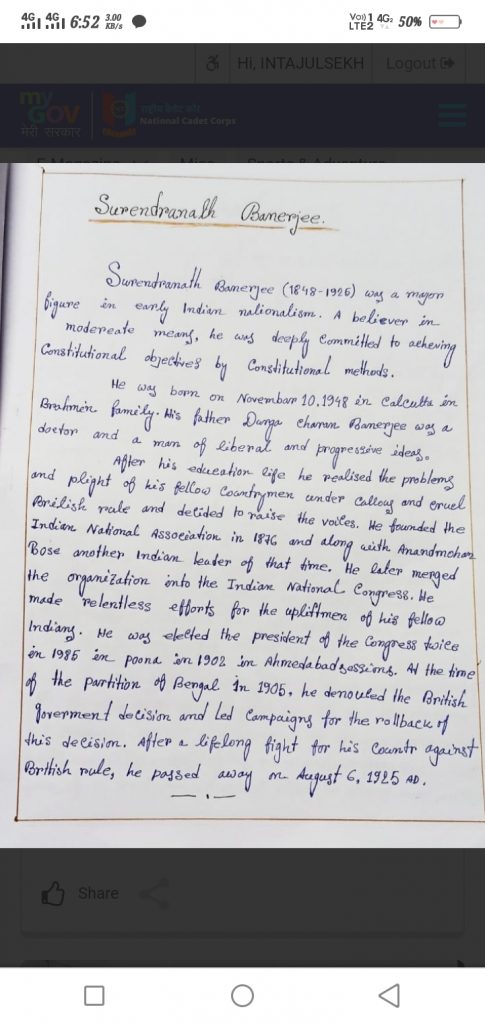 4G 4G 6:52 3.00 KB/s Vo) 1 4G2 LTE2 50%
Hi, INTAJULSEKH Logout
my GOV राष्ट्रीय कैडेट कोर
मेरी सरकार National Cadet Corps
E-Magazine Misc Sports & Adventure
Surendranath Banerjee.
Surendranath Banerjee (1848-1926) was a major
figure in early Indian nalionalism. A believer in
modereate means, he was deeply committed to acheving
Constitutional objectives by Constitutional methods.
He was born on Novembar 10.1948 in Calcutta in
Brahmin family. His father Durga charan Banerjee was a
doctor and a man of liberal and progressive ideas.
After his education life he realised the problems
and plight of his fellow Countrymen under callous and cruel
British rule and decided to raise the voices. He founded the
Indian National Association in 1876 and along with Anandmohan
Bose another Indian leader of that time. He later merged
the organization into the Indian National Congress. He
made relentless efforts for the upliftmen of his fellow
Indians. He was elected the president of the Congress twice
in 1985 in poona in 1902 in Ahmedabad sessions. At the time
of the partition of Bengal in 1905, he denouted the British
goverment decision and Led Campaigns for the rollback of
this decision. After a lifelong fight for his Countr against
Brithish rule, he passed away on August 6, 1925 AD.
Share